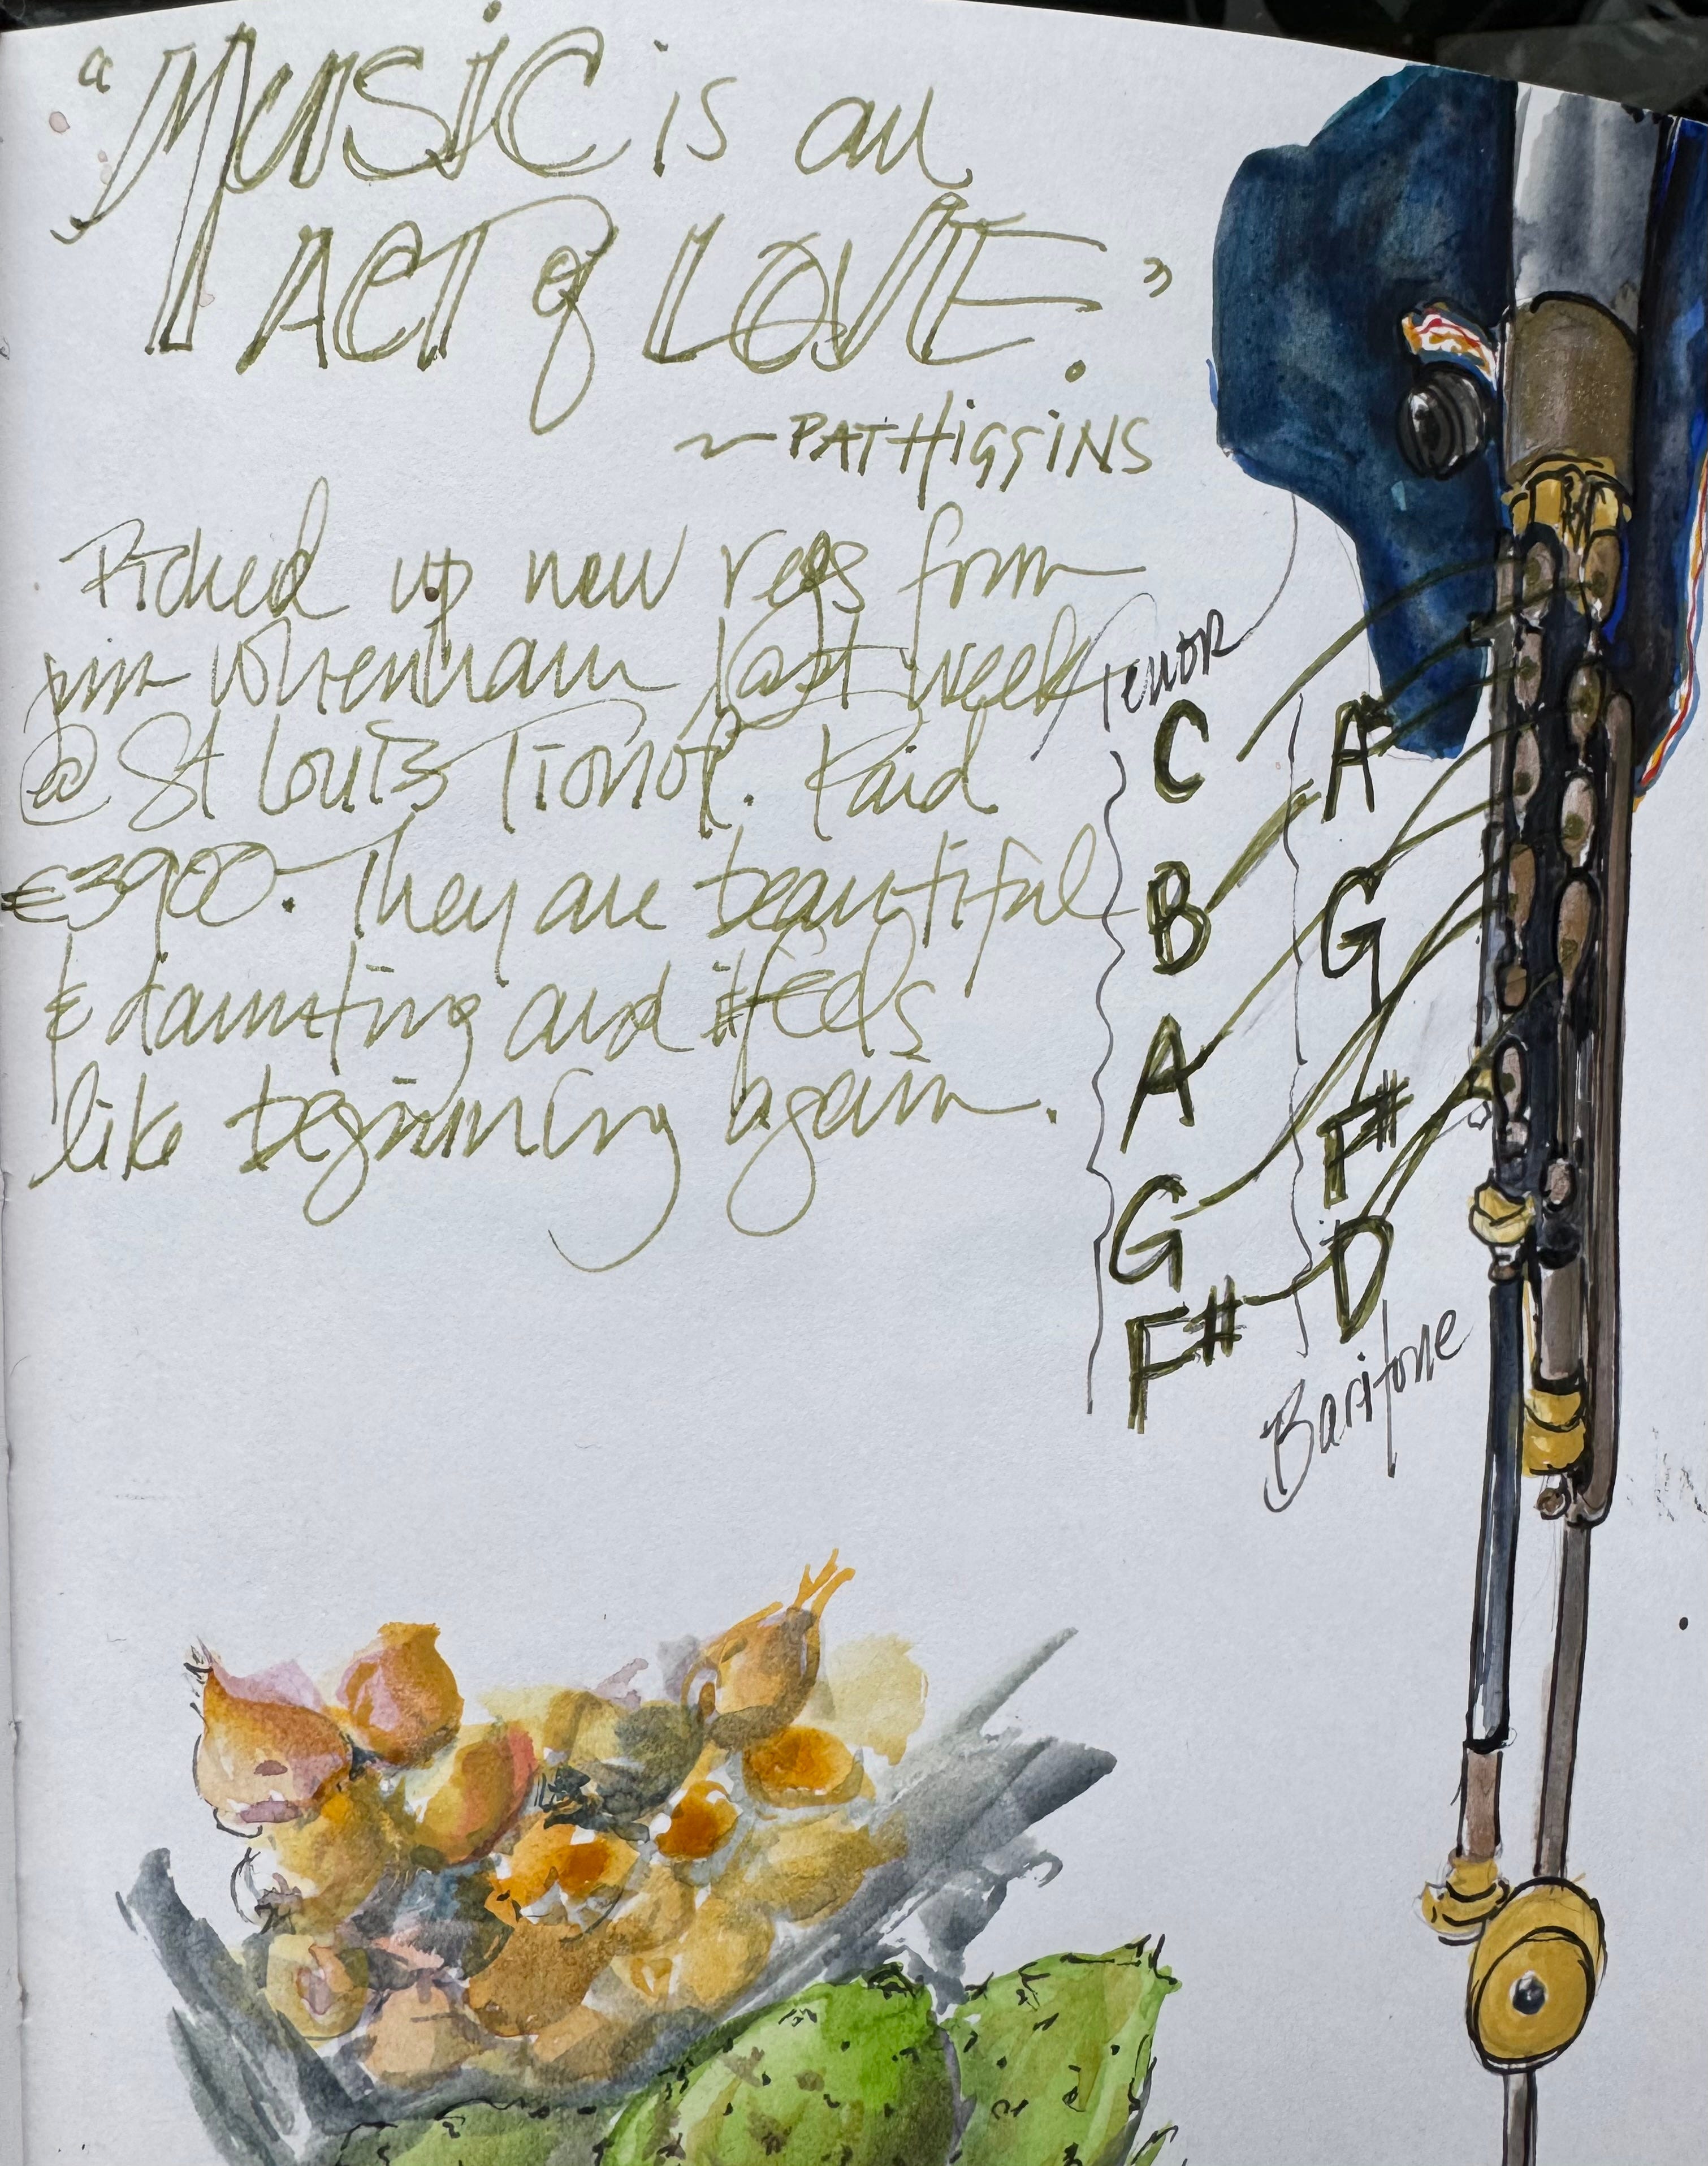 "MUSIC is an
ACT of LOVE."
~ PAT HIGGINS
Picked up new regs from
last week
@ St Louis Tionol. Paid
€3900. They are beautiful
& daunting and it feels
like beginning again.
Tenor
C
B
A
G
F#
A
G
F#
D
Baritone